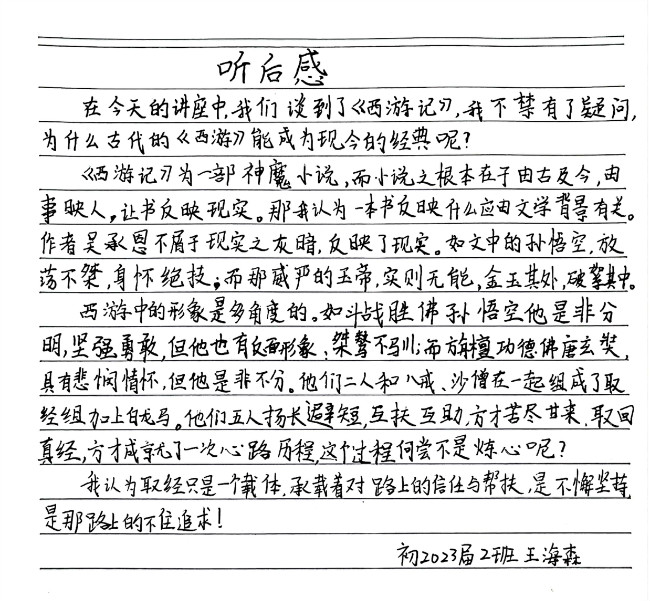 听后感
在今天的讲座中,我们谈到了《西游记》,我不禁有了疑问,
为什么古代的《西游》能成为现今的经典呢?
《西游记》为一部神魔小说,而小说之根本在于由古及今,由
事映人,让书反映现实。那我认为一本书反映什么应由文学背景有关。
作者吴承恩不屑于现实之灰暗,反映了现实。如文中的孙悟空,放
荡不桀,身怀绝技;而那威严的玉帝,实则无能,金玉其外,破絮其中。
西游中的形象是多角度的。如斗战胜佛孙悟空他是非分
明,坚强勇敢,但他也有反面形象、桀骜不驯;而旃檀功德佛唐玄奘,
具有悲悯情怀,但他是非不分。他们二人和八戒、沙僧在一起组成了取
经组加上白龙马。他们五人扬长避短,互扶互助,方才苦尽甘来,取回
真经,方才成就了一次心路历程,这个过程何尝不是炼心呢?
我认为取经只是一个载体,承载着对路上的信任与帮扶,是不懈坚持,
是那路上的不住追求!
初2023届2班 王海森